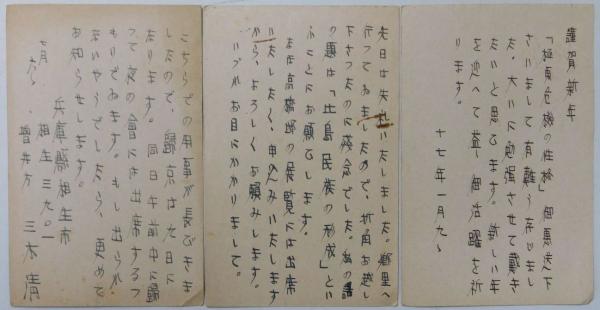 謹賀新年
「極東危機の性格」御惠送下
さいまして有難う存じまし
た。大いに勉強させて戴き
たいと思ひます。新しい年
を迎へて益々御活躍を祈
ります。
十七年一月九日
先日は失礼いたしました。郷里へ
行つてゐましたので、折角お越し
下さつたのに残念でした。私の講
演は「出島民族の形成」とい
ふことにお願ひします。
また高橋邸の展覧には出席
いたしたく、申込みいたします
から、よろしくお願みします。
いづれお目にかかりまして。
こちらでの用事が長びきま
したので、歸京は九日に
なります。同日午前中に歸
つて夜の會には出席するつ
もりでゐます。もし出られ
ないやうでしたら、更めて
お知らせします。
七月六日
兵庫縣相生市
相生三九〇一
曽井方 三木清